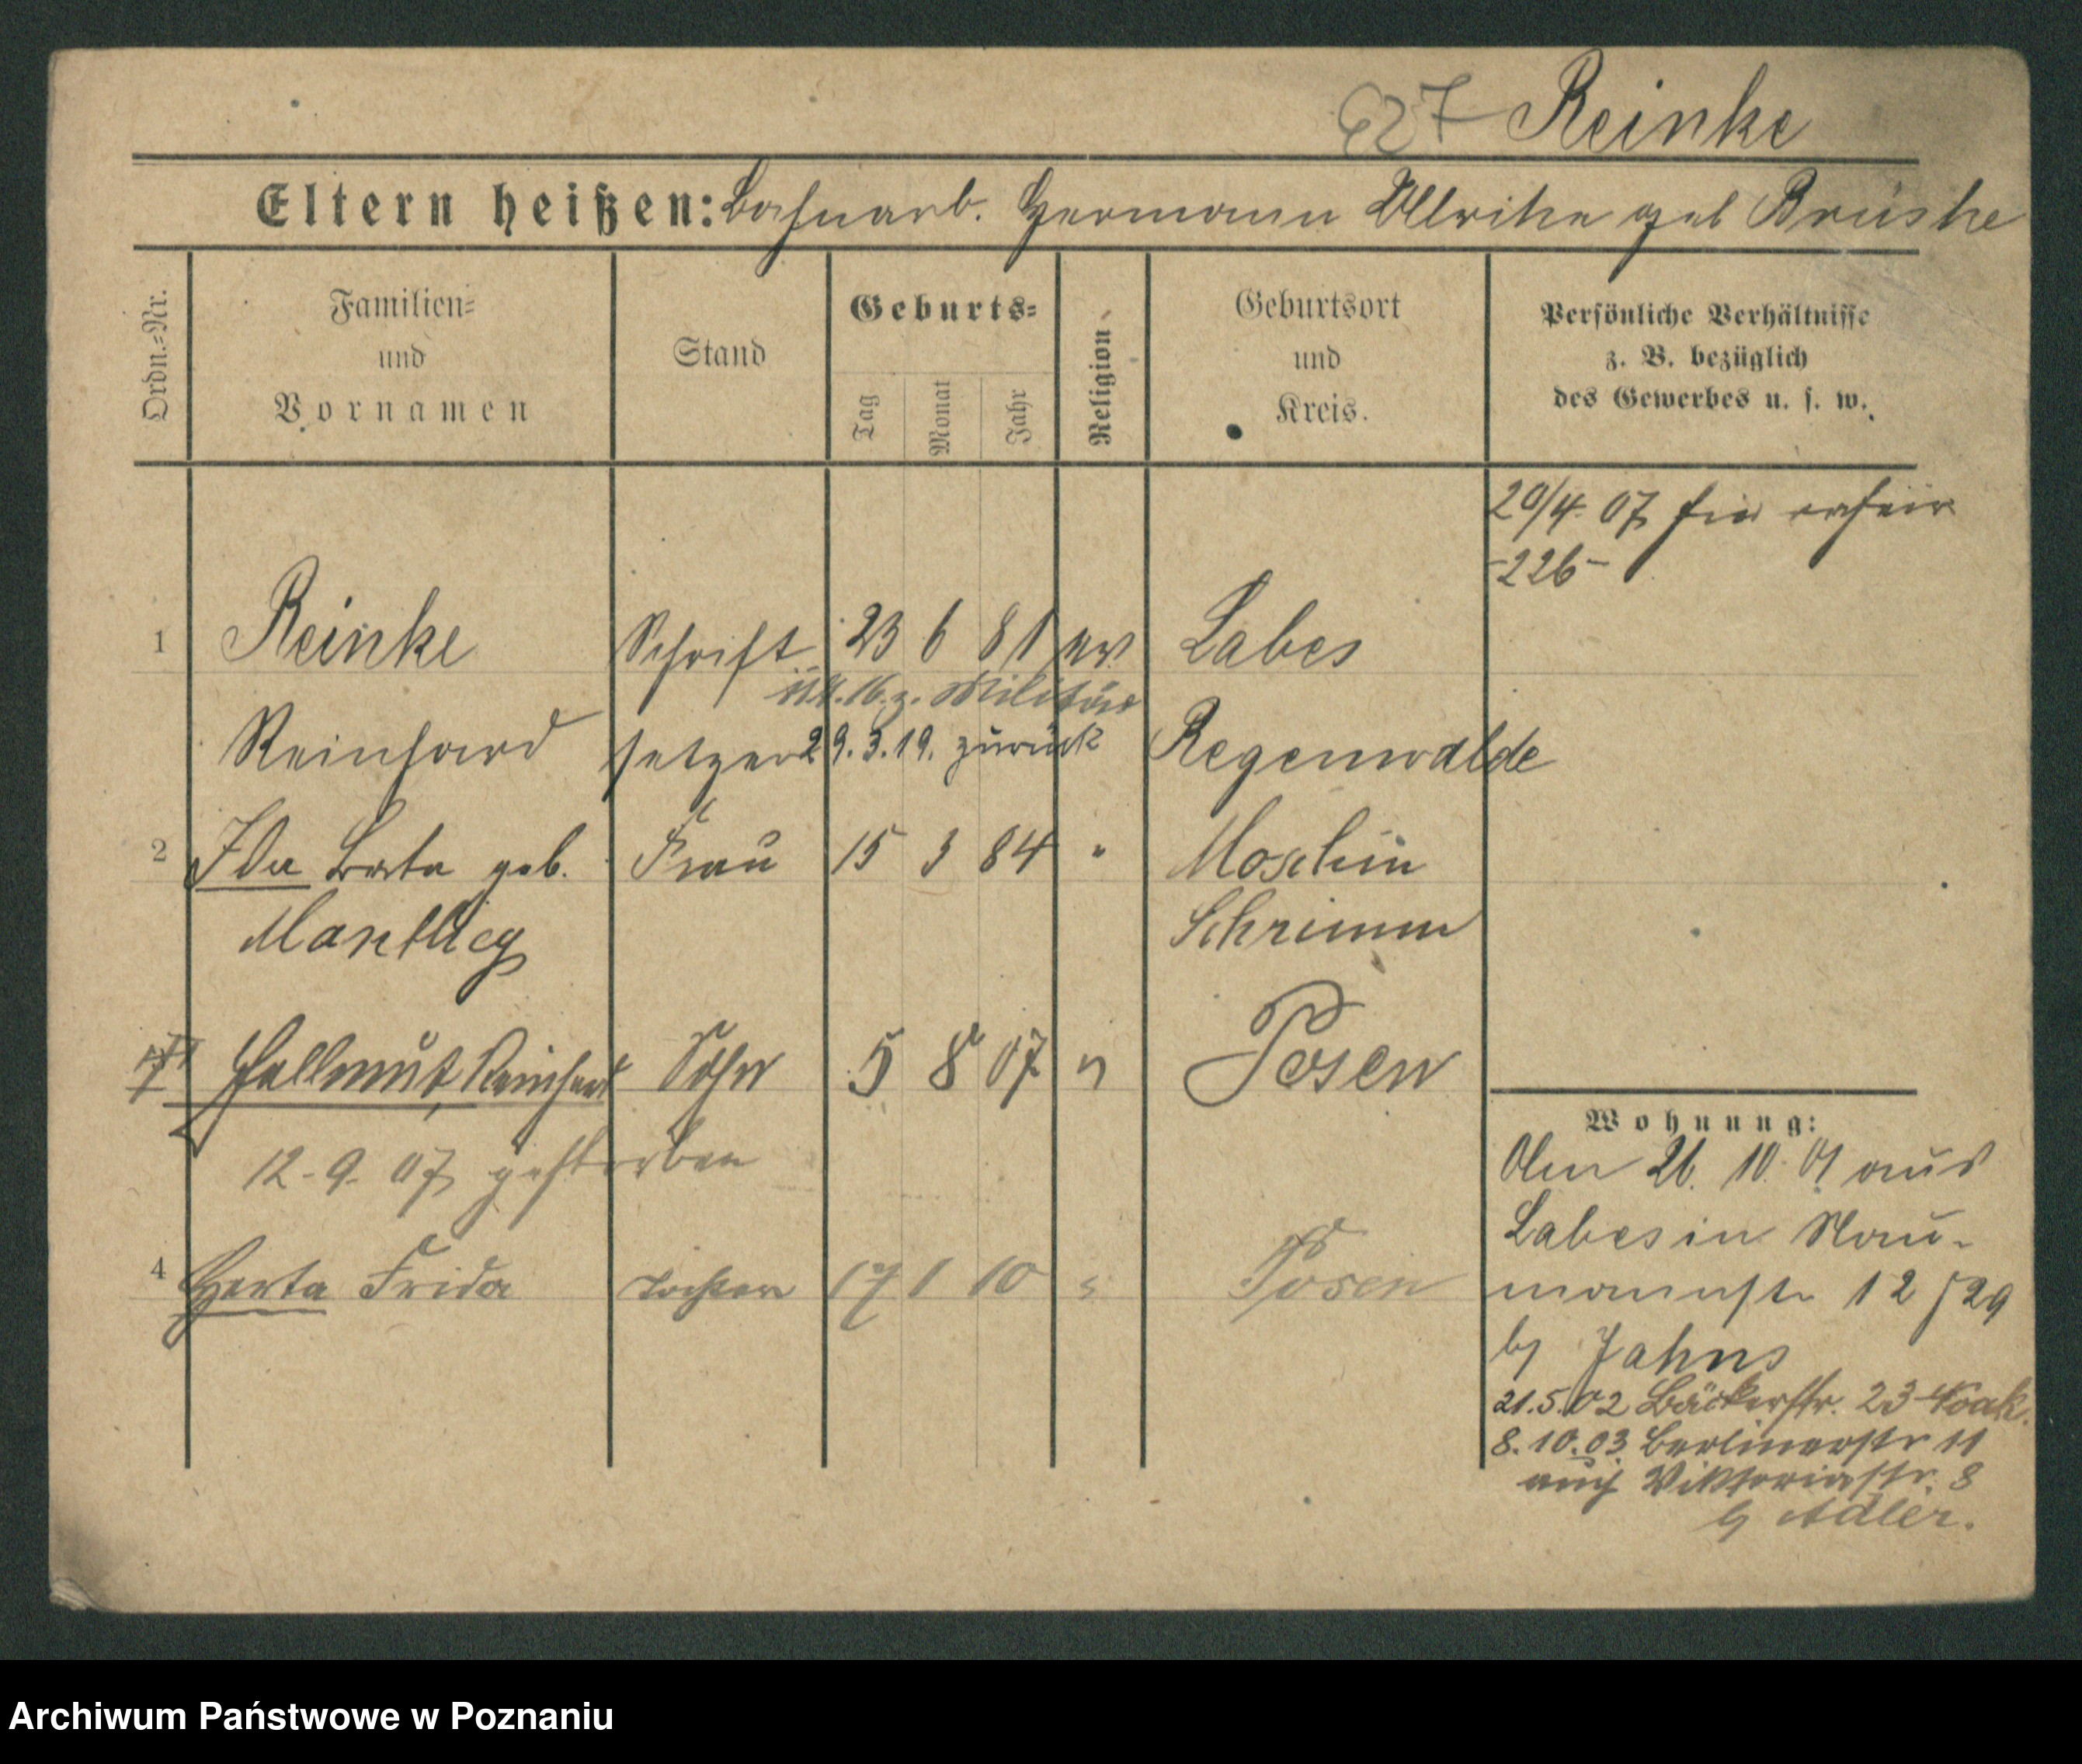 627 Reinke
Eltern heißen: Bahnarb. Hermann Ulrike geb Brüske
Ordn.-Nr.
Familien-
und
Vornamen
Stand
Geburts-
Tag
Monat
Jahr
Religion
Geburtsort
und
Kreis.
Persönliche Verhältnisse
z. B. bezüglich
des Gewerbes u. s. w.
20/4. 07 hier
-226-
1 Reinke Schrift 23 6 81 ev Labes
16. z. Militär
Reinhard setzer 29.3.19. zurück Regenwalde
2 Ida geb. Frau 15 3 84 " Moschin
Schrimm
Hellmut, Reinhard Sohn 5 8 07 " Posen
12-9. 07 gestorben
4 Herta Frida Tochter 17 1 10 " Posen
Wohnung:
26. 10. 01 aus
Labes in Nau-
mannstr 12 /29
by Jahns
21.5.02 Bäckerstr. 23 Noak.
8.10.03 Berlinerstr 11
auch Viktoriastr. 8
by Adler.
Archiwum Państwowe w Poznaniu